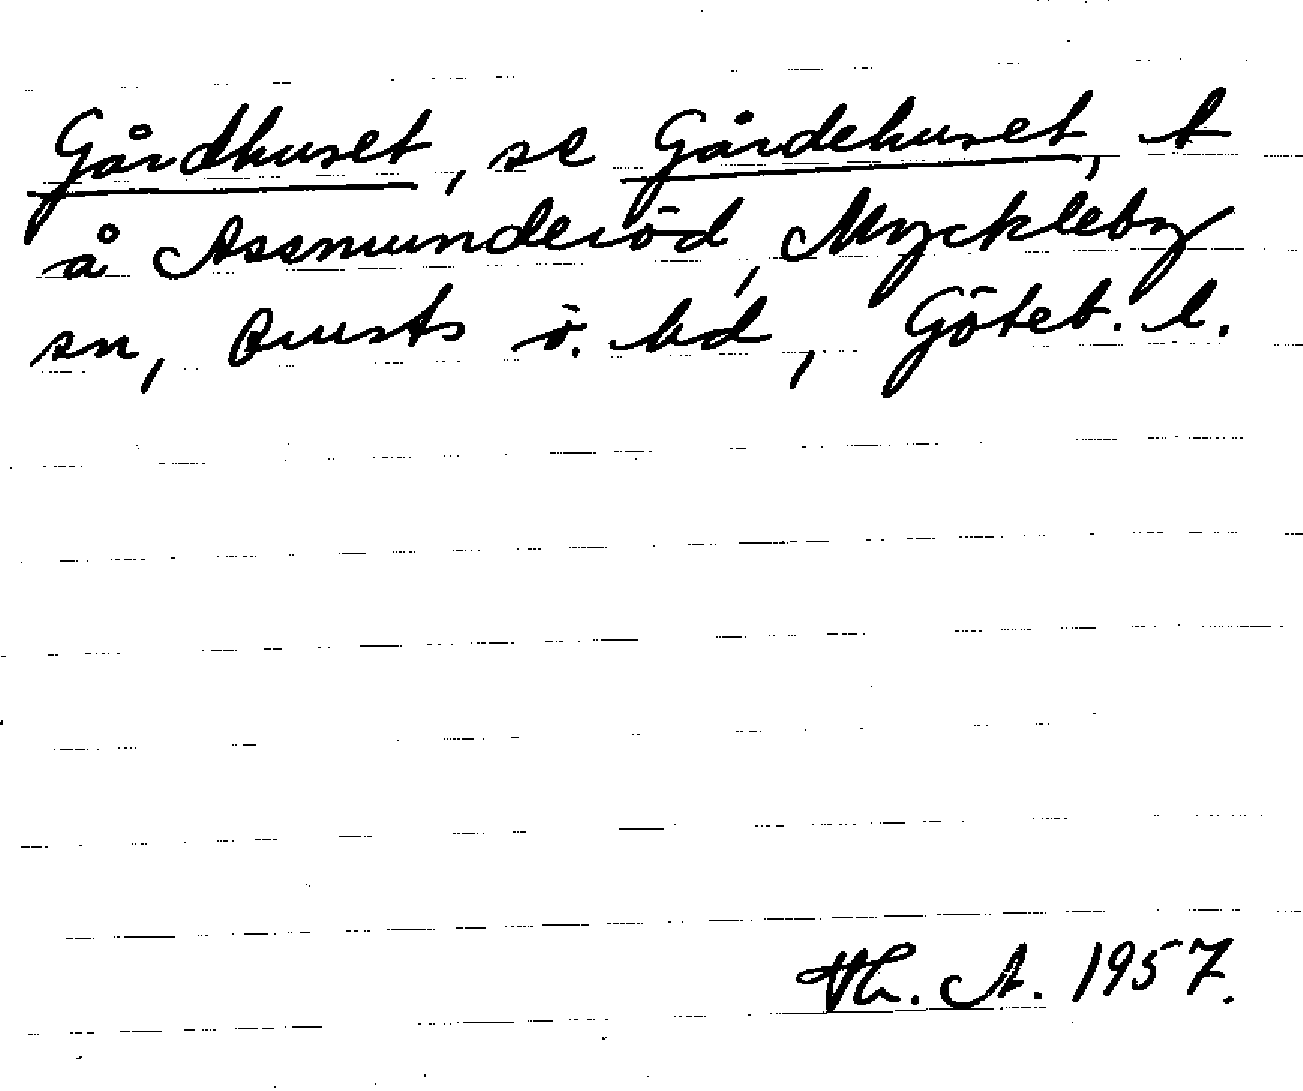 Gårdhuset, se Gårdehuset, t
å Assmunderöd, Myckleby
sn, Orusts ö. hd, Göteb. l.
Th. A. 1957.